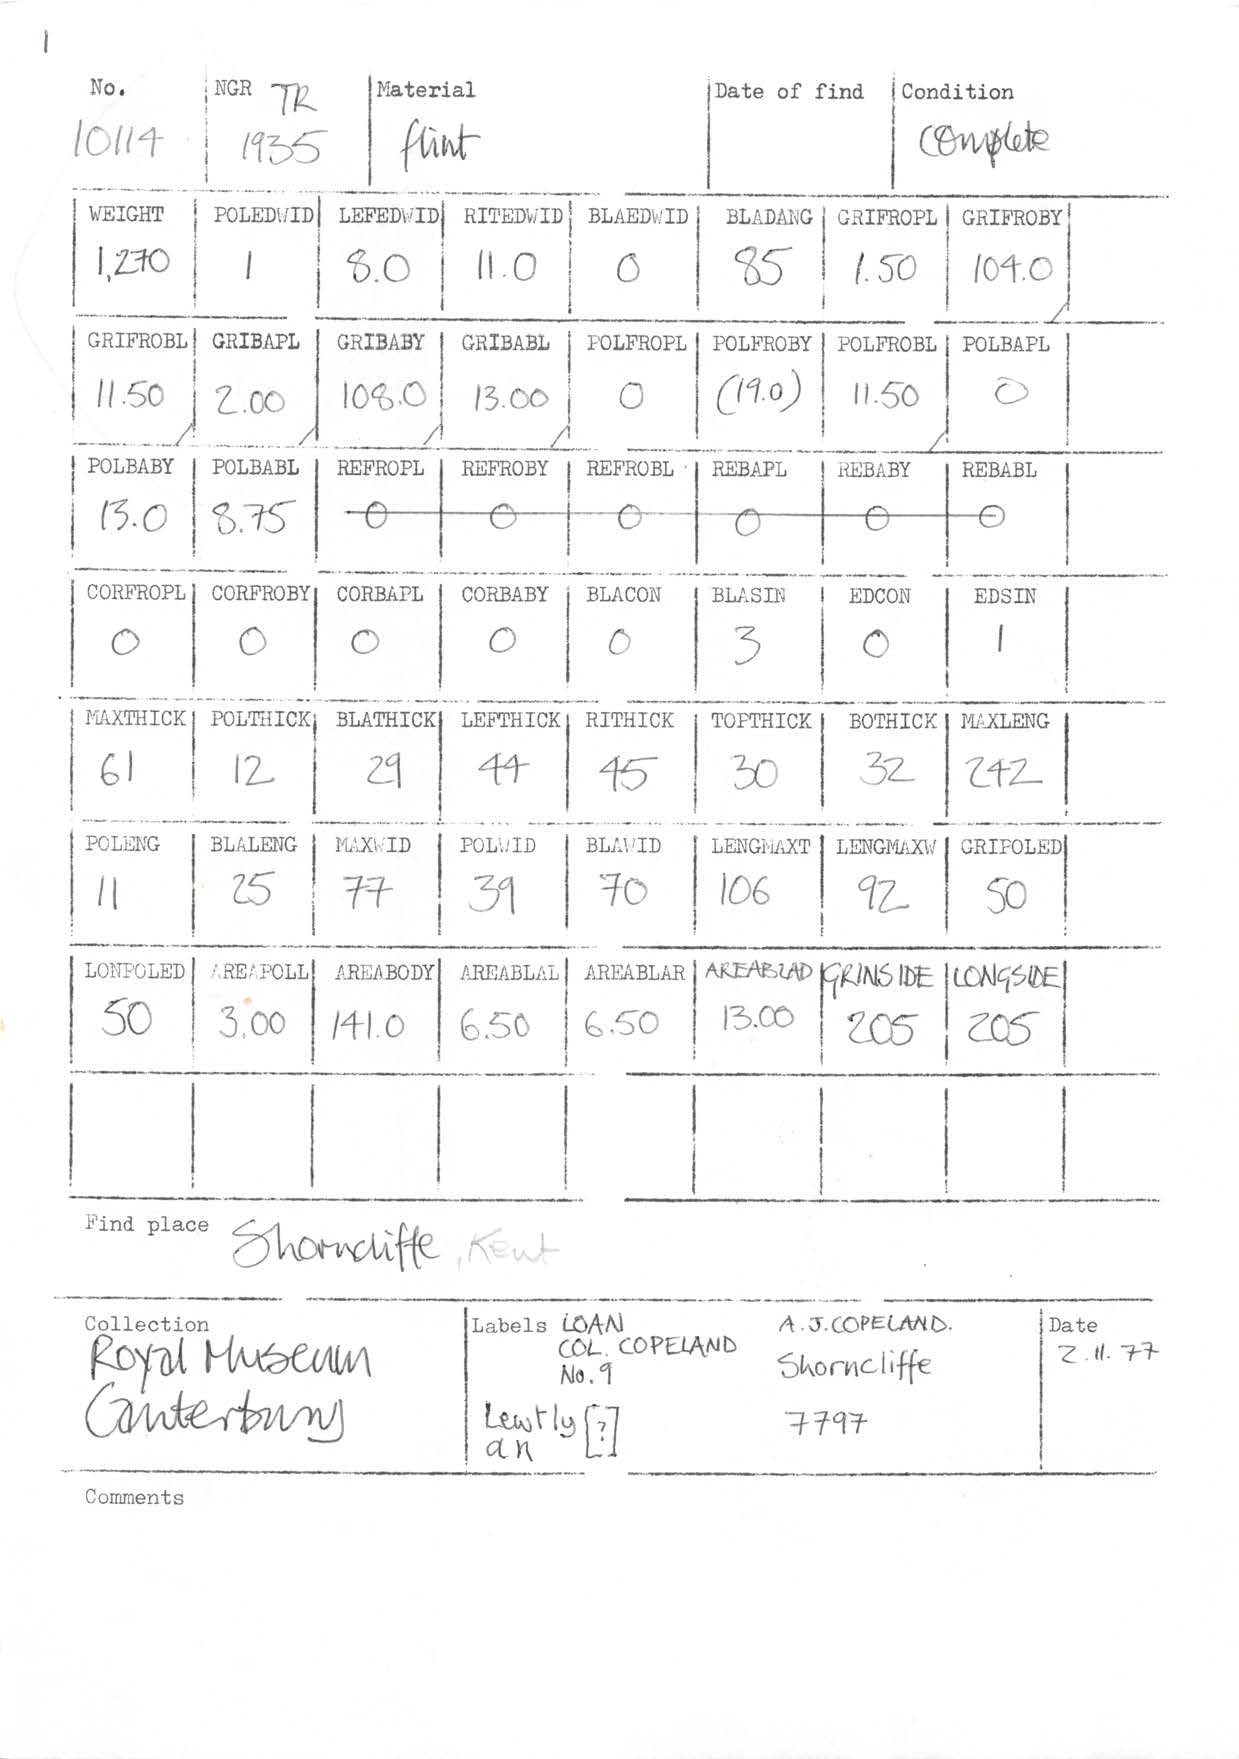 1
No. NGR TR Material Date of find Condition
10114 1935 flint complete
WEIGHT POLEDWID LEFEDWID RITEDWID BLAEDWID BLADANG GRIFROPL GRIFROBY
1,270 1 8.0 11.0 0 85 1.50 104.0
GRIFROBL GRIBAPL GRIBABY GRIBABL POLFROPL POLFROBY POLFROBL POLBAPL
11.50 2.00 108.0 13.00 0 (19.0) 11.50 0
POLBABY POLBABL REFROPL REFROBY REFROBL REBAPL REBABY REBABL
13.0 8.75 0 0 0 0 0 0
CORFROPL CORFROBY CORBAPL CORBABY BLACON BLASIN EDCON EDSIN
0 0 0 0 0 3 0 1
MAXTHICK POLTHICK BLATHICK LEFTHICK RITHICK TOPTHICK BOTHICK MAXLENG
61 12 29 44 45 30 32 242
POLENG BLALENG MAXWID POLWID BLAWID LENGMAXT LENGMAXW GRIPOLED
11 25 77 39 70 106 92 50
LONPOLED AREAPOLL AREABODY AREABLAL AREABLAR AREABLAD GRINSIDE LONGSIDE
50 3.00 141.0 6.50 6.50 13.00 205 205
Find place Shorncliffe, Kent
Collection Labels LOAN A.J.COPELAND. Date
Royal Museum COL. COPELAND Shorncliffe 2.11.77
No.9
Canterbury Lewtly [?] 7797
an
Comments